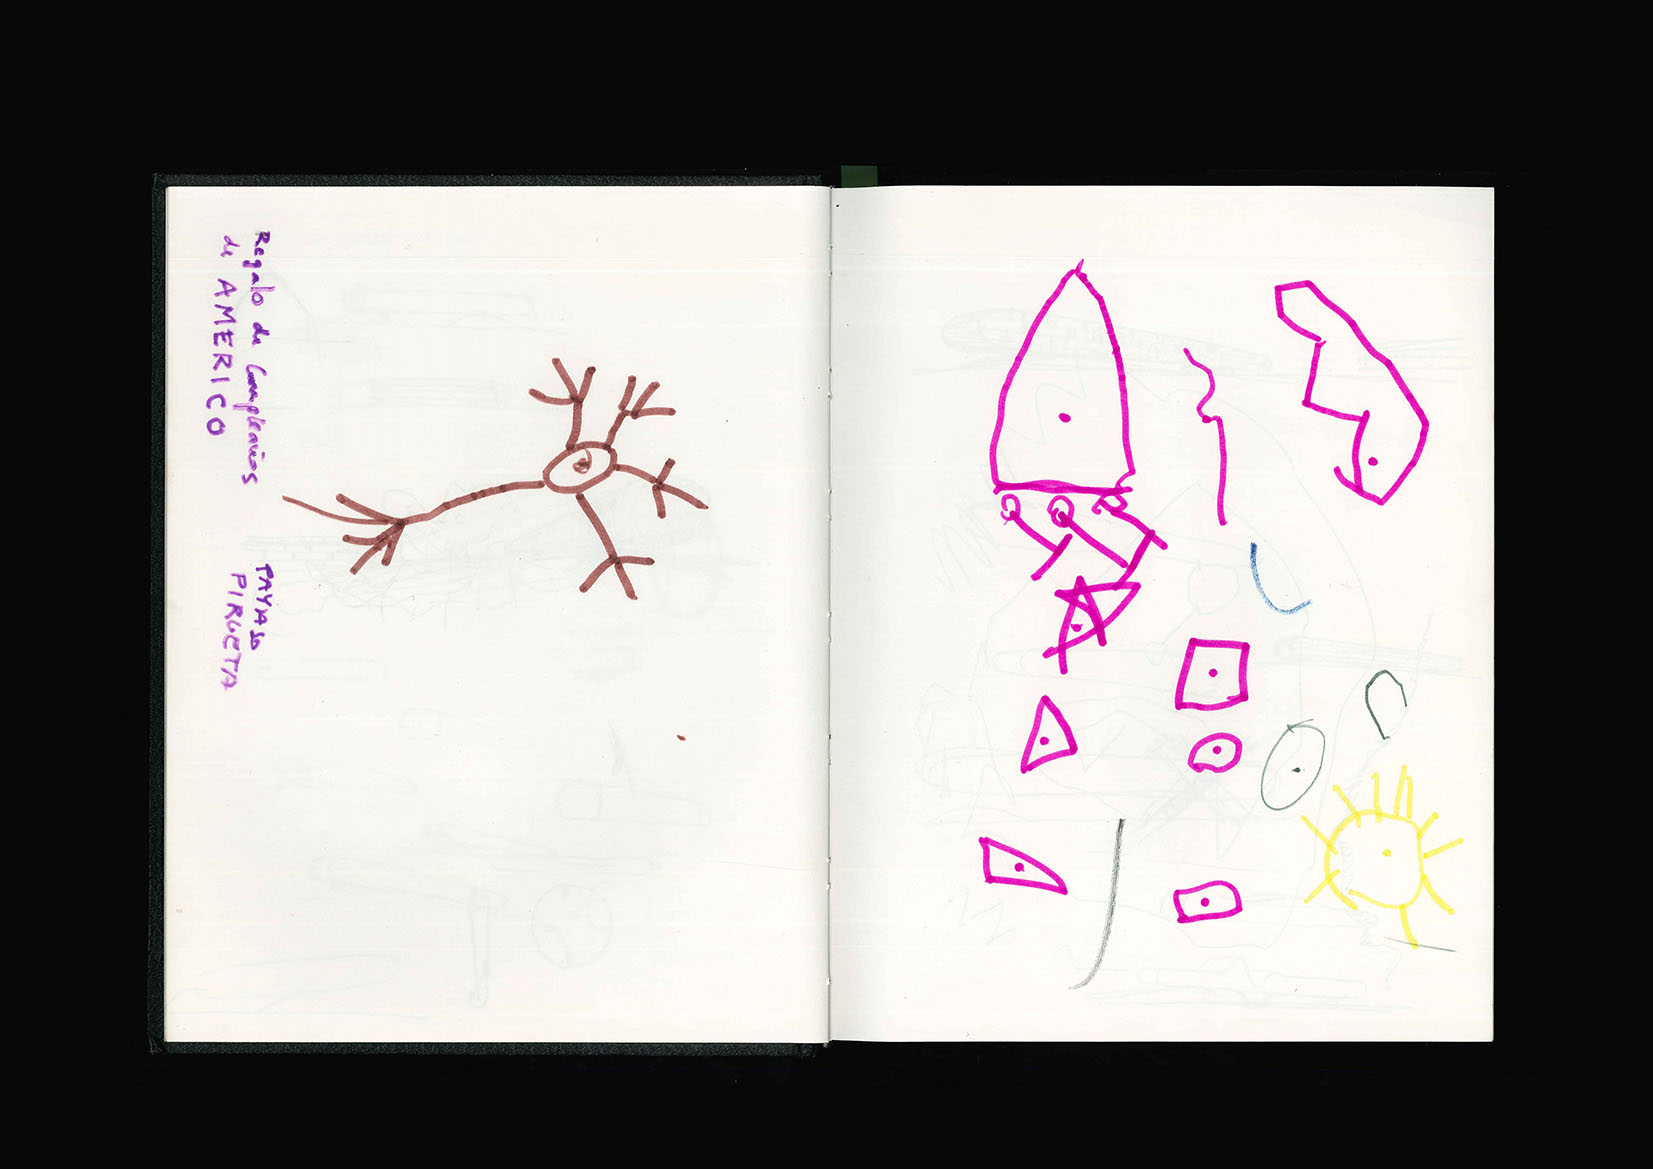 Regalo de Cumpleaños
de AMERICO
PAYASO
PIRUETA